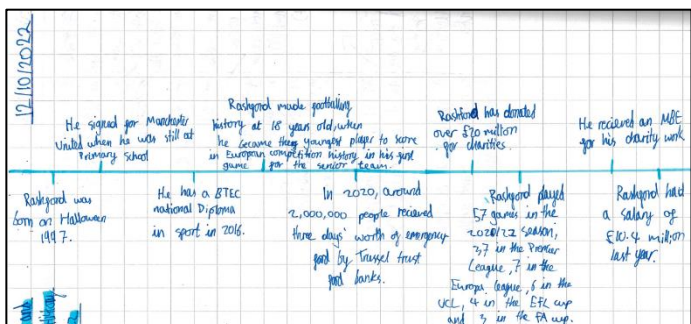 12/10/2022
He signed for Manchester
United when he was still at
Primary School
Rashford made footballing
history at 18 years old, when
he became the youngest player to score
in European competition history in his first
game for the senior team.
Rashford has donated
over £20 million
for charities.
He recieved an MBE
for his charity work
Rashford was
born on Halloween
1997.
He has a BTEC
national Diploma
in sport in 2016.
In 2020, around
2,000,000 people recieved
three days' worth of emergency
food by Trussel trust
food banks.
Rashford played
57 games in the
season,
37 in the Premier
League, 7 in the
Europa league, 6 in the
UCL, 4 in the EFL cup
and 3 in the FA cup.
Rashford had
a salary of
£10.4 million
last year.